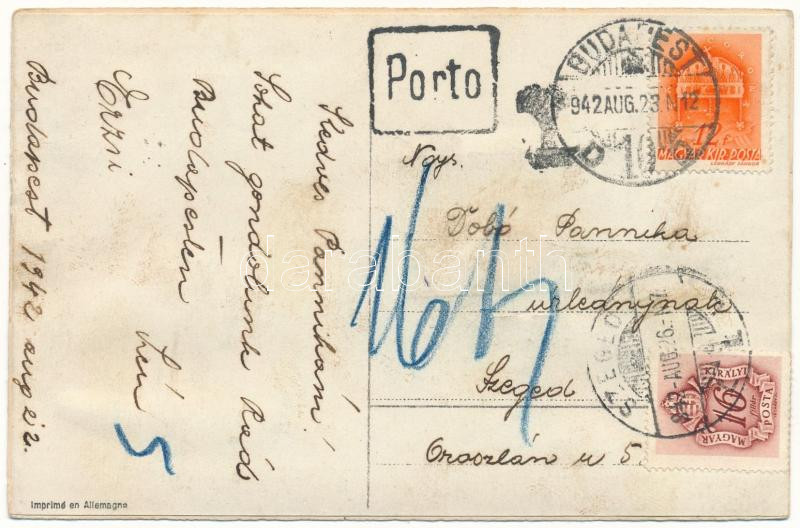 Kedves Pannikám!
Sokat gondolunk Rád
Budapesten
Erzsi
Budapest 1942 aug 22.
Imprimé en Allemagne
Porto
BUDAPEST
942 AUG. 23. N12
12 f
MAGYAR KIR. POSTA
Nagys.
Dobó Pannika
urleánynak
Szeged
Oroszlán u 5.
16 f
5
SZEGED
AUG. 26.
MAGYAR KIRÁLYI POSTA
16
fillér
darabanth